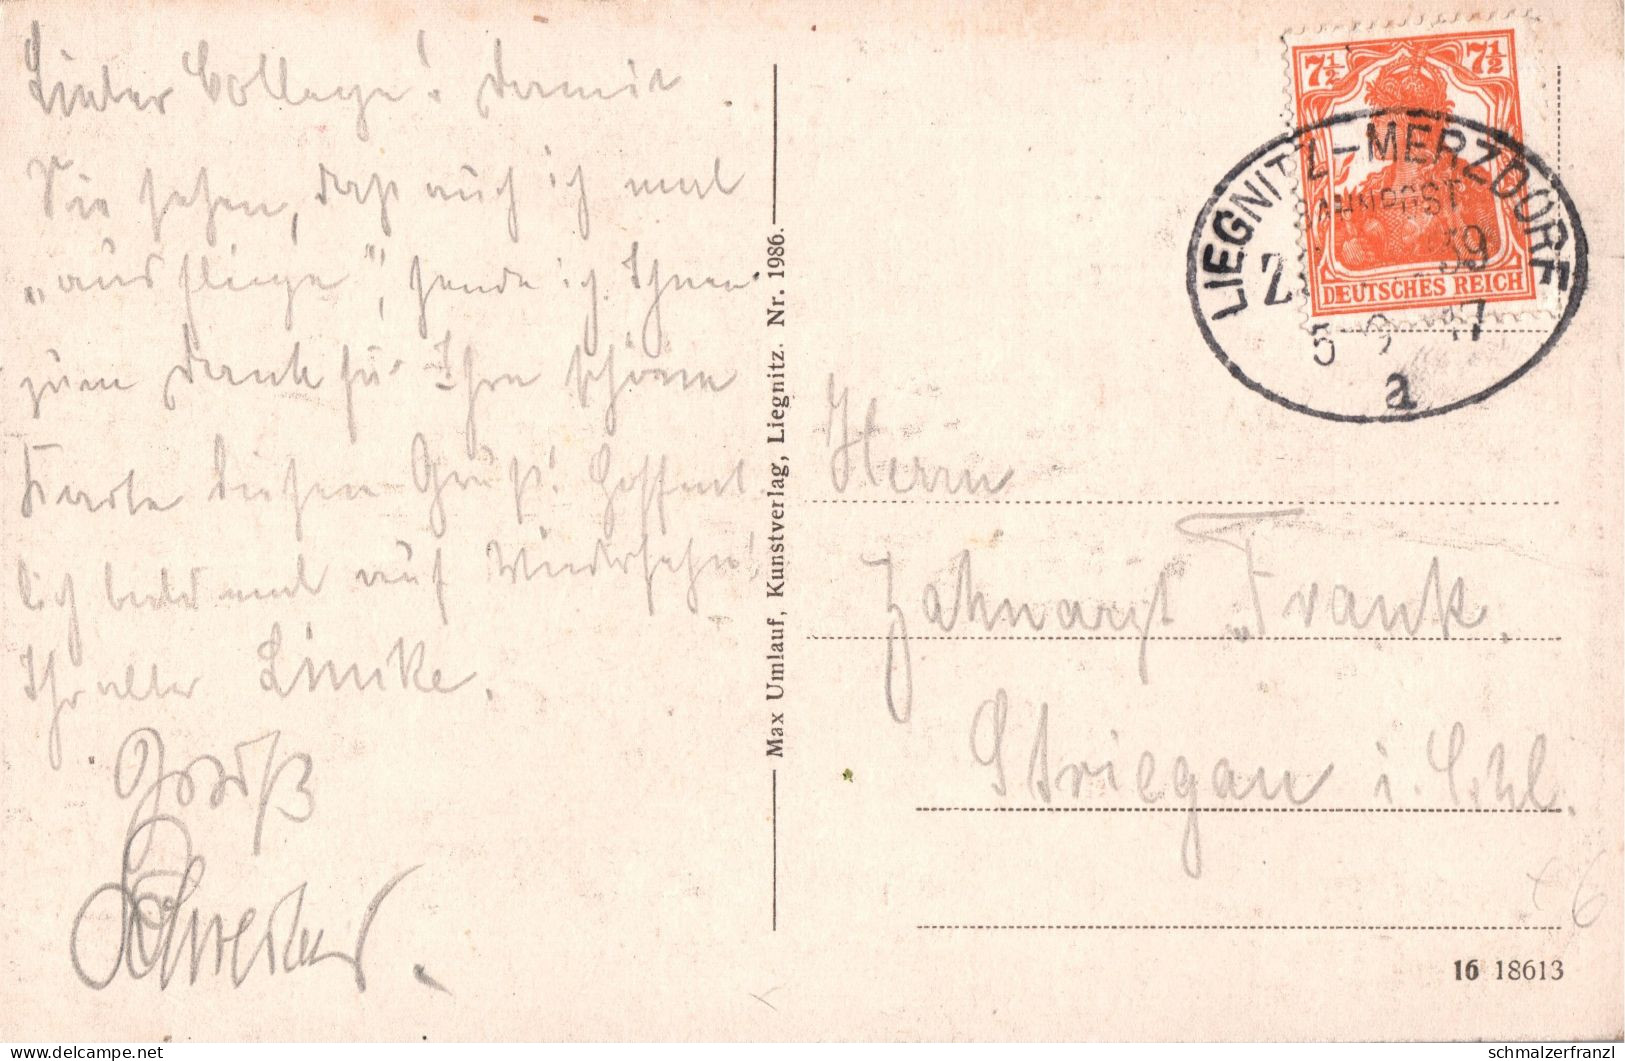 Lieber College! Damit
Sie sehen, daß auch ich mal
„ausfliege“, sende ich Ihnen
zum Dank für Ihre schöne
Karte diesen Gruß! Hoffent
lich bald mal auf Wiedersehn!
Ihr alter Linke.
Gruß
Max Umlauf, Kunstverlag, Liegnitz. Nr. 1986.
7½ 7½
DEUTSCHES REICH
LIEGNITZ-MERZDORF
BAHNPOST
Z 39
5 17
a
Herrn
Zahnarzt Frank.
Striegau i. Schl.
+6
16 18613
www.delcampe.net
schmalzerfranzl